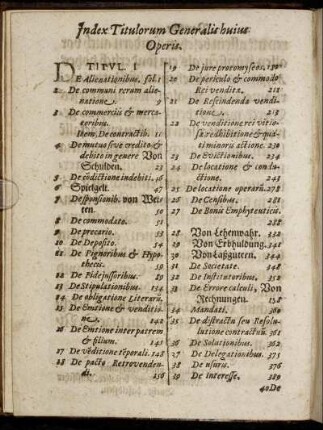 Index Titulorum Generalis huius
Operis.
TITVL. I
DE Alienationibus. fol. 1
2 De communi rerum alie-
natione. 9
3 De commerciis & merca-
toribus.
Item. De contractib. 11
4 De mutuo seu credito &
debito in genere Von
Schulden. 23
5 De indebiti. 16
6 Spielgelt. 47
7 De sponsionib. von Wet-
ten. 50
8 De commodato. 51
9 De precario. 53
10 De Deposito. 54
11 De Pignoribus & Hypo-
thecis. 59
12 De Fidejussoribus. 89
13 De Stipulationibus. 134
14 De obligatione Literarũ.
15 De Emtione & venditio-
ne. 142
16 De Emtione inter patrem
& filium. 145
17 De vẽditione rẽporali. 148
18 De pacto Retrovenden-
di. 156
19 De jure protomyseos. 150
20 De periculo & commodo
Rei venditæ. 212
21 De Rescindenda vendi-
tione. 213
22 De venditione rei vitio-
sæ redhibitione & quã-
ti minoris actione. 230
23 De Evictionibus. 234
24 De locatione & condu-
ctione. 243
25 De locatione operarũ. 278
26 De Censibus. 281
27 De Bonis Emphyteuticis.
288
28 Von Lehenwahr. 332
29 Von Erbhuldung. 345
30 Von Laßgütern. 344
31 De Societate. 448
32 De Institoribus. 352
33 De Errore calculi, Von
Rechnungen. 358
34 Mandati. 360
35 De distractu seu Resolu-
tione contractuũ. 361
36 De Solutionibus. 362
37 De Delegationibus. 375
38 De usuris. 376
39 De interesse. 389
40 De